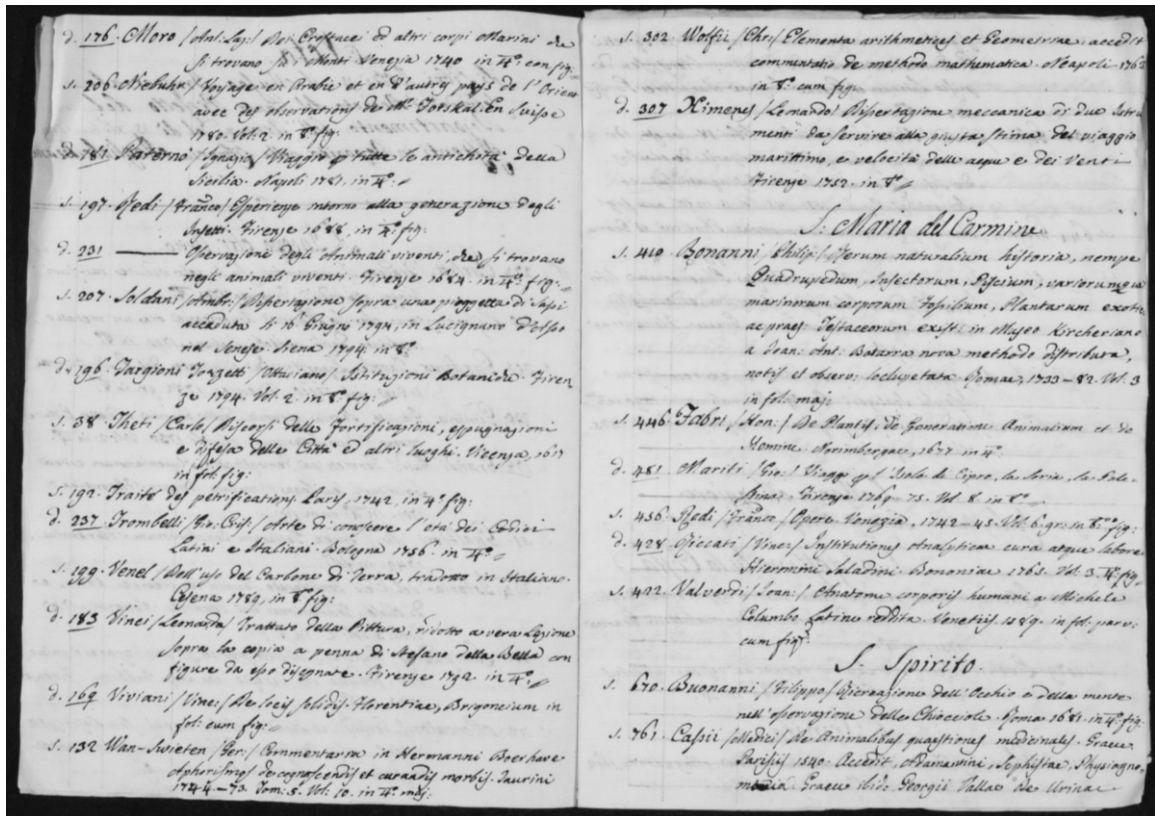 d. 176. Moro /Ant: Laz:/ Dei Crostacei ed altri corpi Marini che
si trovano su' Monti. Venezia 1740 in 4.º con fig:
s. 206. Niebuhr / Voyage en Arabie et en d'autres pays de l'Orient
avec des observations de Mr. Forskal. En Suisse
1780. Vol: 2. in 8.º fig:
787. Paternò /Ignazio/ Viaggio p tutte le antichità della
Sicilia. Napoli 1781. in 4.º
s. 197. Redi /Franco/ Esperienze intorno alla generazione degli
Insetti. Firenze 1688. in 4.º fig:
d. 231 ——— Osservazione degli Animali viventi, che si trovano
negli animali viventi. Firenze 1684. in 4.º fig:
s. 207. Soldani /Ambr:/ Dissertazione sopra una pioggetta di Sassi
accaduta li 16 Giugno 1794. in Lucignano d'Asso
nel Senese. Siena 1794. in 8.º
d. 196. Targioni Tozzetti /Ottaviano/ Istituzioni Botaniche. Firen
ze 1794. Vol: 2. in 8.º fig:
s. 38. Theti /Carlo/ Discorsi delle Fortificazioni, espugnazioni
e difesa delle Città ed altri Luoghi. Vicenza, 1617
in fol: fig:
s. 192. Traité des petrifications Paris, 1742. in 4.º fig:
d. 237 Trombelli /Gio: Cris:/ Arte di conoscere l'età dei Codici
Latini e Italiani. Bologna 1756. in 4.º
s. 199. Venel / Dell'uso del Carbone di Terra, tradotto in Italiano.
Cesena 1789. in 8.º fig:
d. 183 Vinci /Leonardo/ Trattato della Pittura, ridotto a vera Lezione
sopra la copia a penna di Stefano della Bella con
figure da esso disegnate. Firenze 1792. in 4.º
d. 169 Viviani /Vinc:/ De locis solidis. Florentiae, Brigoncium in
fol: cum fig:
s. 132 Wan-Swieten /Ger:/ Commentaria in Hermanni Boerhave
Aphorismos de cognoscendis et curandis morbis. Taurini
1744–73. Tom: 5. Vol: 10. in 4.º maj:
s. 302. Wolfii /Chr:/ Elementa arithmetices et Geometriae: accedit
commentatio de methodo mathematica. Neapoli. 1762
in 8.º cum fig:
d. 307 Ximenes /Leonardo/ Dissertazione meccanica di due Istru
menti da servire alla giusta stima del viaggio
marittimo, e velocità delle acque e dei Venti
Firenze 1752. in 8.º
S. Maria del Carmine
s. 410 Bonanni /Philip:/ Rerum naturalium historia, nempe
Quadrupedum, Insectorum, Piscium, variorumque
marinorum corporum Fossilium, Plantarum exotic:
ac praes: Testaceorum exist: in Museo Kircheriano
a Joan: Ant: Batarra nova methodo distributa,
notis et observ: locupletata. Romae, 1733–82. Vol: 3
in fol: maj:
s. 446. Fabri /Hon:/ De Plantis, de Generatione Animalium et de
Homine. Norimbergae, 1677. in 4.º
d. 481. Mariti /Gio:/ Viaggi p l'Isola di Cipro, la Soria, la Pale
stina, Firenze 1769–75. Vol. 8. in 8.º
s. 456. Redi /Franco/ Opere. Venezia, 1742–45. Vol: 6. gr: in 8.º fig:
d. 428 Riccati /Vinc:/ Institutiones Analyticae cura atque labore
Hieronimi Saladini. Bononiae 1765. Vol: 3. 4.º fig:
s. 422. Valverdi /Joan:/ Anatome corporis humani a Michele
Columbo Latine reddita. Venetiis 1589. in fol: parv:
cum fig:
S. Spirito.
s. 670. Buonanni /Filippo/ Ricreazione dell'Occhio e della mente
nell'osservazione delle Chiocciole. Roma 1681. in 4.º fig:
s. 761. Cassii /Medici/ De Animalibus quaestiones medicinales. Graece
Parisiis 1540. Accedit, Adamantini, Sophistae, Physiogno
monica. Graece ibid: Georgii Vallae de Urinae